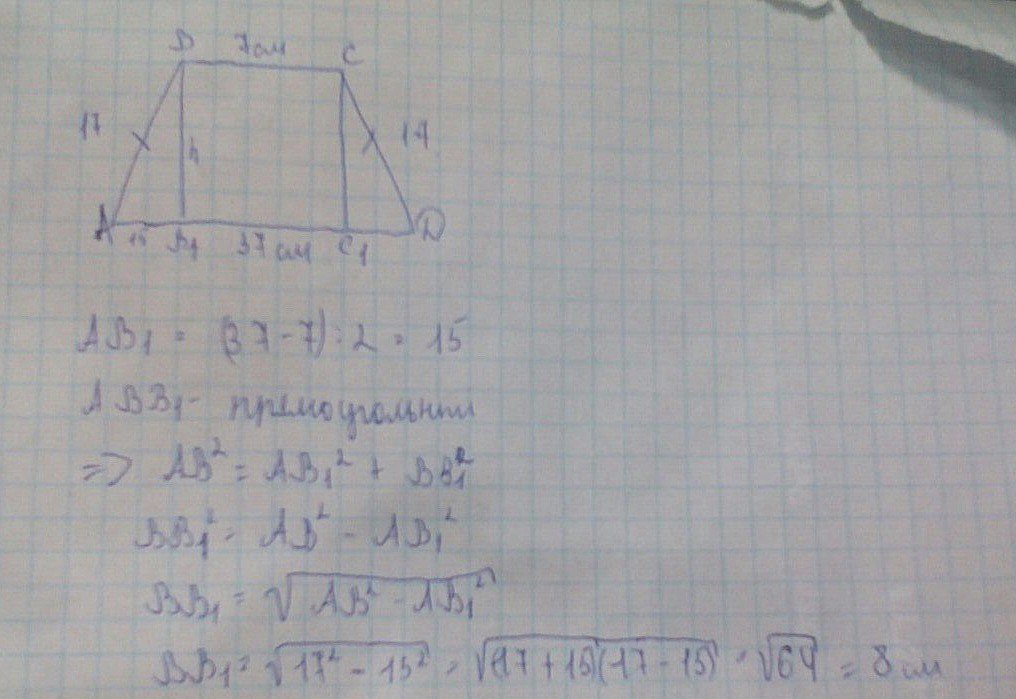 B 7 см C
17 h 17
A 15 B₁ 37 см C₁ D
AB₁ = (37 - 7) : 2 = 15
ABB₁ - прямоугольник
=> AB² = AB₁² + BB₁²
BB₁² = AB² - AB₁²
BB₁ = √(AB² - AB₁²)
BB₁ = √(17² - 15²) = √((17 + 15)(17 - 15)) = √64 = 8 см